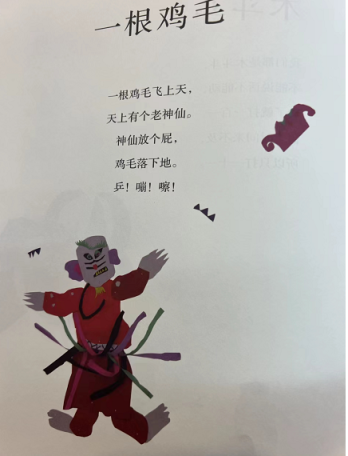 一根鸡毛
一根鸡毛飞上天，
天上有个老神仙。
神仙放个屁，
鸡毛落下地。
乒！嘣！嚓！